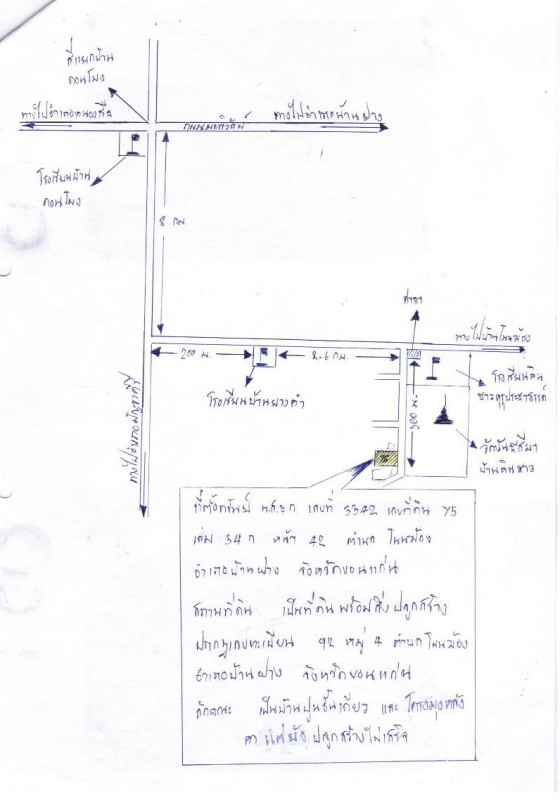 สี่แยกบ้าน
ดอนโมง
ทางไปอำเภอหนองเรือ
ถนนมะลิวัลย์
ทางไปอำเภอบ้านฝาง
โรงเรียนบ้าน
ดอนโมง
8 กม.
ศาลา
ทางไปบ้านโนนฆ้อง
200 ม.
2.6 กม.
โรงเรียนบ้านยางคำ
300 ม.
โรงเรียนหิน
ขาวคุรุประชาสรรค์
วัดพันธสีมา
บ้านหินขาว
ทางไปอำเภอมัญจาคีรี
ที่ตั้งทรัพย์ น.ส.3 ก เลขที่ 3342 เลขที่ดิน 75
เล่ม 34 ก หน้า 42 ตำบล โนนฆ้อง
อำเภอบ้านฝาง จังหวัดขอนแก่น
สถานที่ดิน เป็นที่ดินพร้อมสิ่งปลูกสร้าง
ปรากฏเลขทะเบียน 92 หมู่ 4 ตำบลโนนฆ้อง
อำเภอบ้านฝาง จังหวัดขอนแก่น
ลักษณะ เป็นบ้านปูนชั้นเดียว และ โครงมุงหลัง
คา แต่ยัง ปลูกสร้างไม่เสร็จ